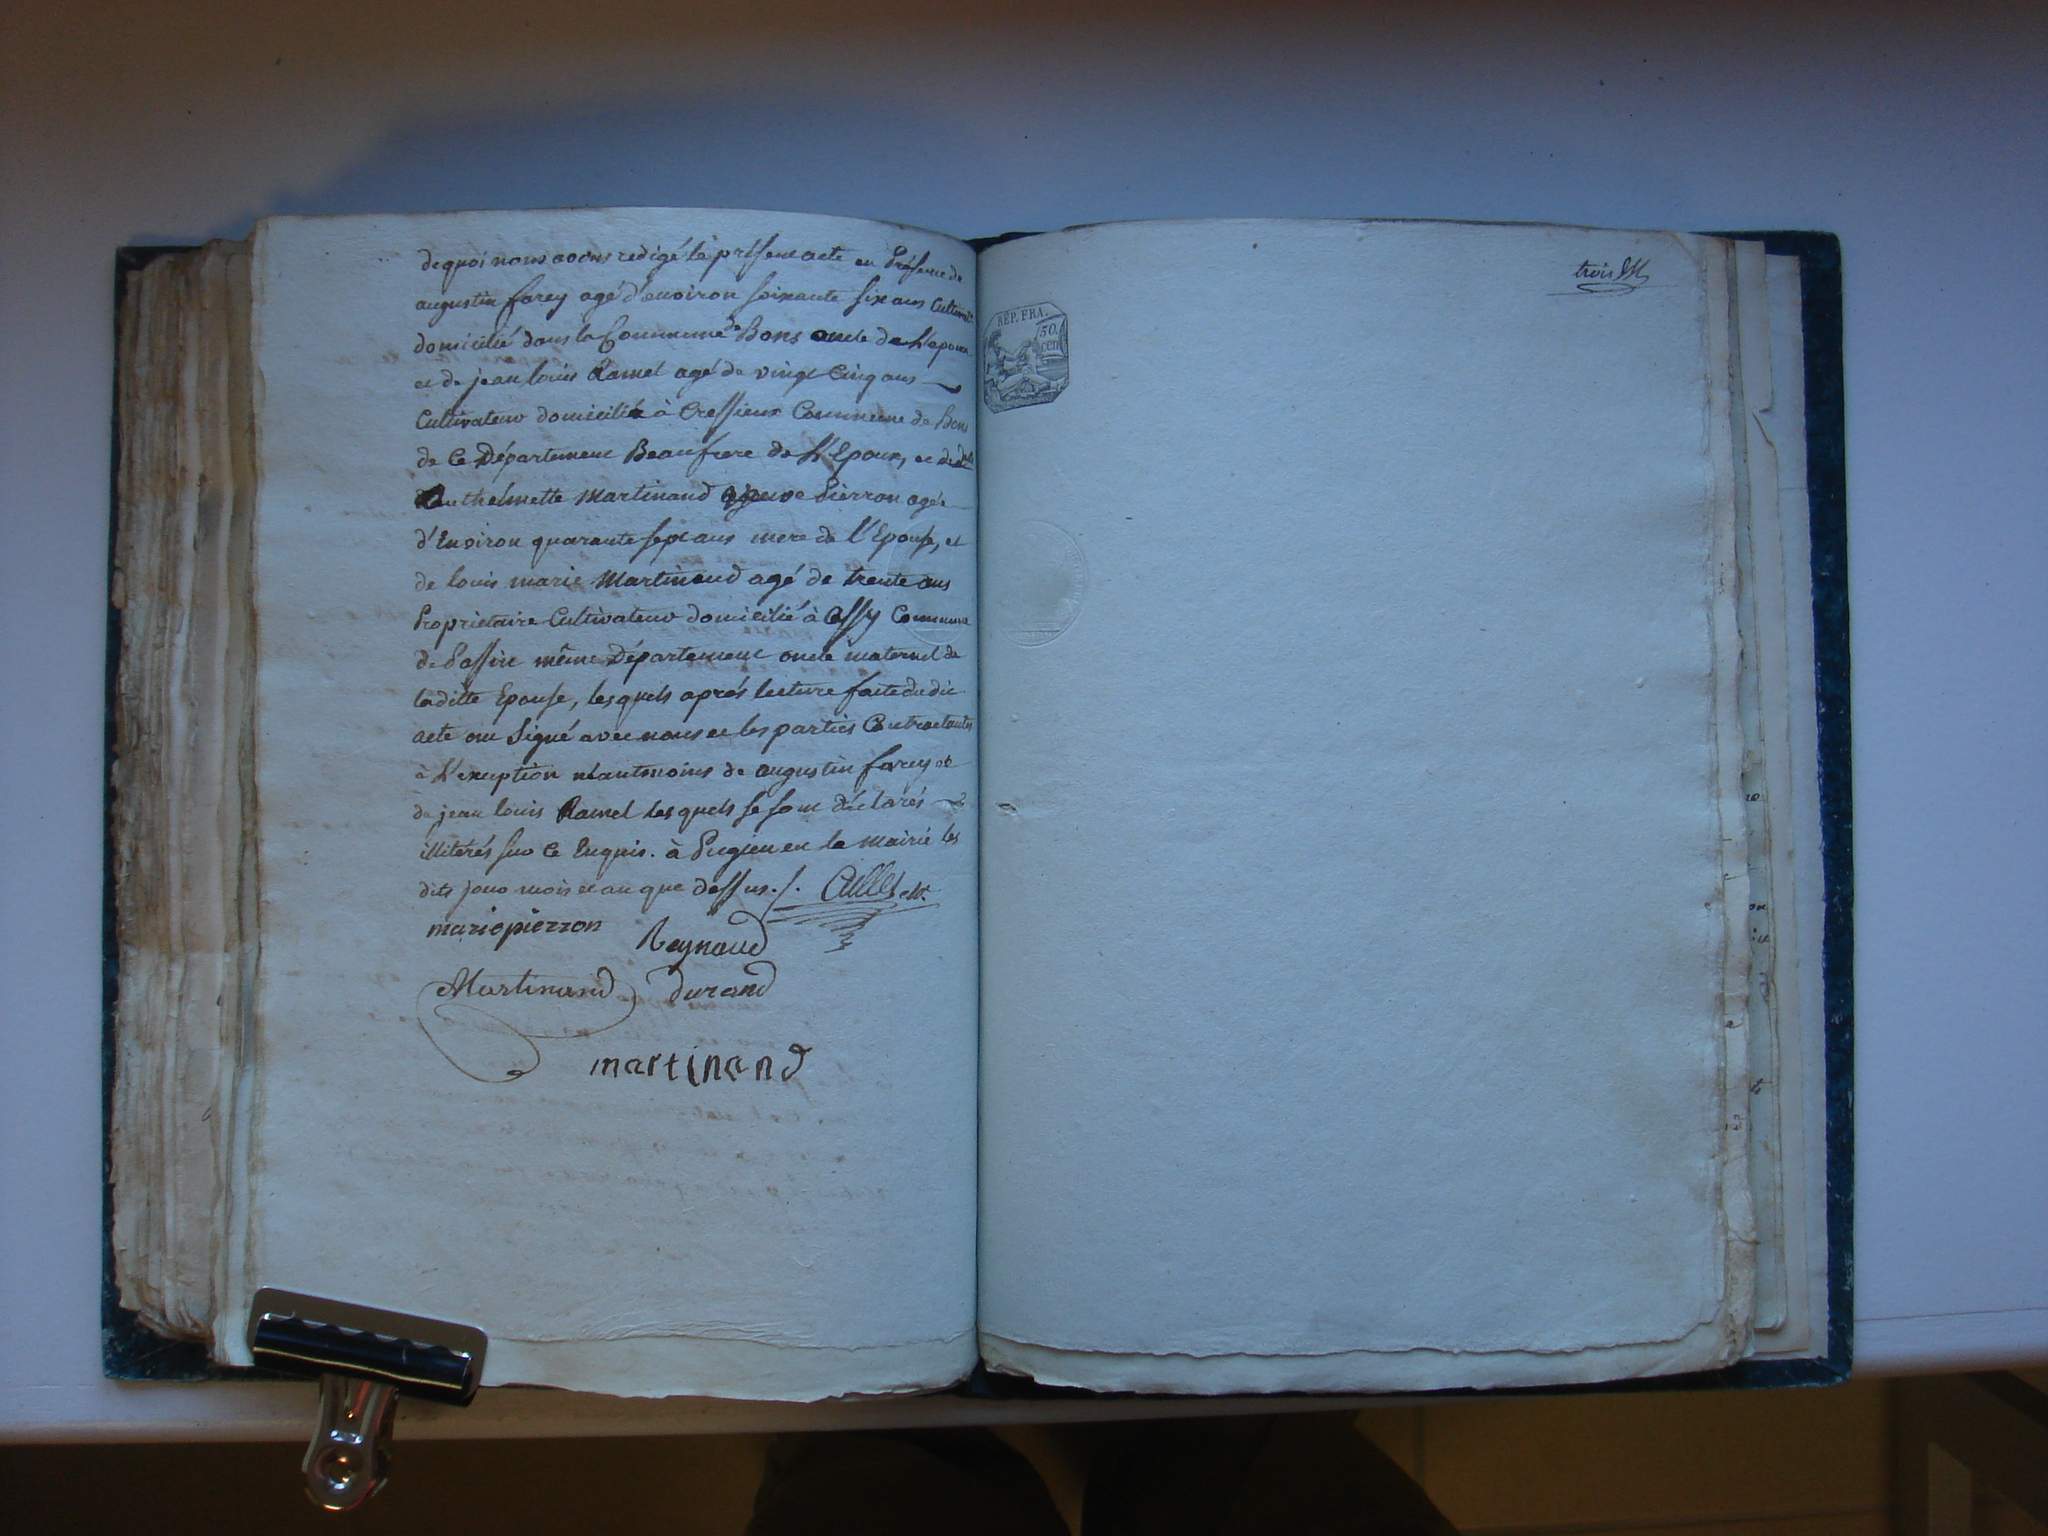 de quoi nous avons redigé le présent acte en Présence de
augustin farcy agé d'environ soixante six ans Cultivatr
domicilié dans la Commune de Bons oncle de L'epoux
et de jean louis Ramel agé de vingt Cinq ans
Cultivateur domicilié à Cressieux Commune de Bons
de Ce Département Beaufrere de L'Epoux, et de
anthelmette Martinand veuve Pierron agée
d'Environ quarante sept ans mere de l'Epouse, et
de louis marie Martinand agé de trente ans
Proprietaire Cultivateur domicilié à Essy Commune
de Passin même Département oncle maternel de
laditte Epouse, lesquels aprés lecture faite du dit
acte ont Signé avec nous et les parties Contractantes
à L'exception néantmoins de augustin farcy et
de jean louis Ramel lesquels se sont déclarés
illiterés sur Ce Enquis. à Pugieu en la Mairie les
dits jour mois et an que dessus ./.
mariepierron
Reynaud
Martinand durand
martinand
trois
REP. FRA.
50.
cen